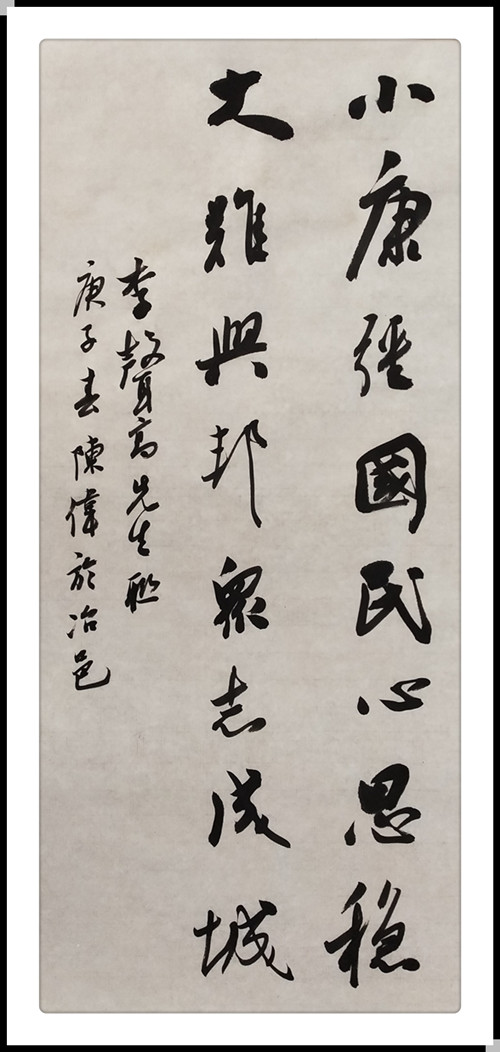 小康經國民心思稳
大難興邦眾志成城
李聲高先生聯
庚子春陳偉於冶邑